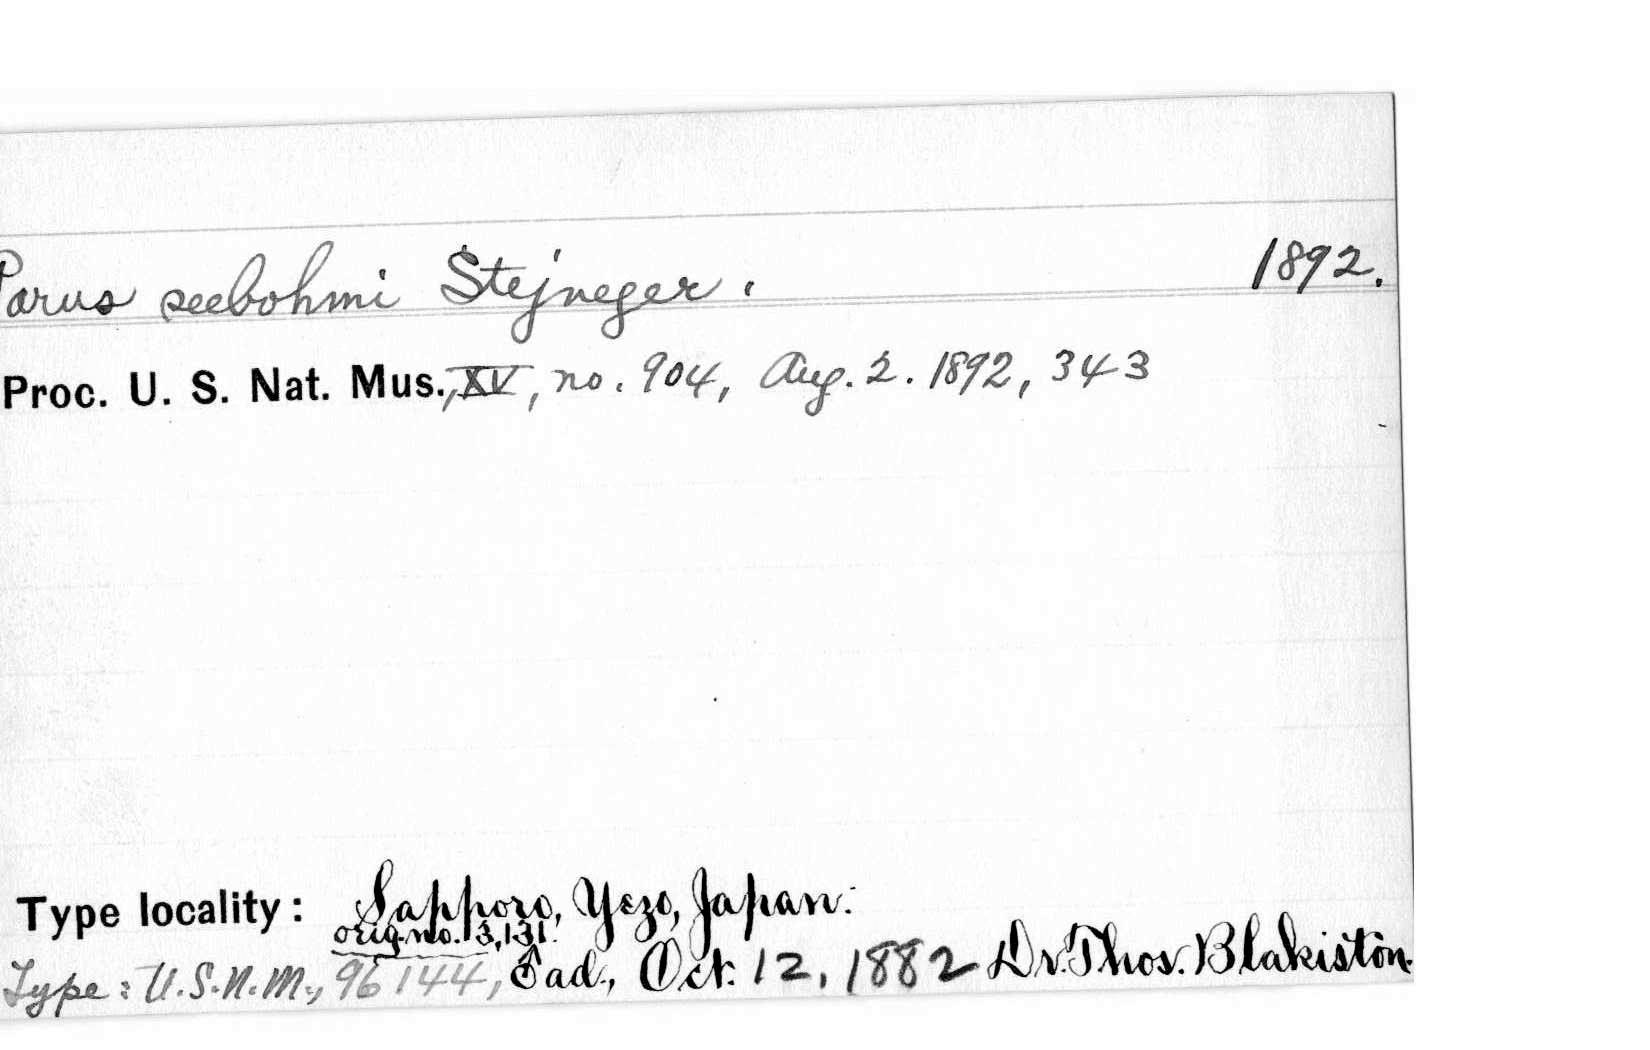 Parus seebohmi Stejneger. 1892.
Proc. U. S. Nat. Mus., XV, no. 904, Aug. 2. 1892, 343
Type locality: Sapporo, Yezo, Japan.
orig. no. 3,131.
Type: U.S.N.M., 96144, ♂ad., Oct. 12, 1882 Dr. Thos. Blakiston.